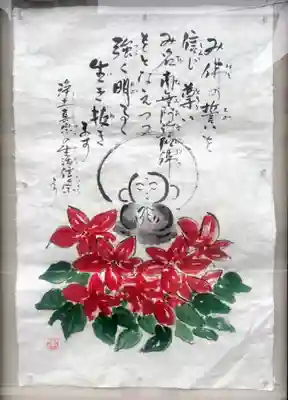 み佛の誓を
信じ 尊い
み名南無阿弥陀佛
をとなえつつ
強く明るく
生き抜き
ます
浄土真宗の生活信条